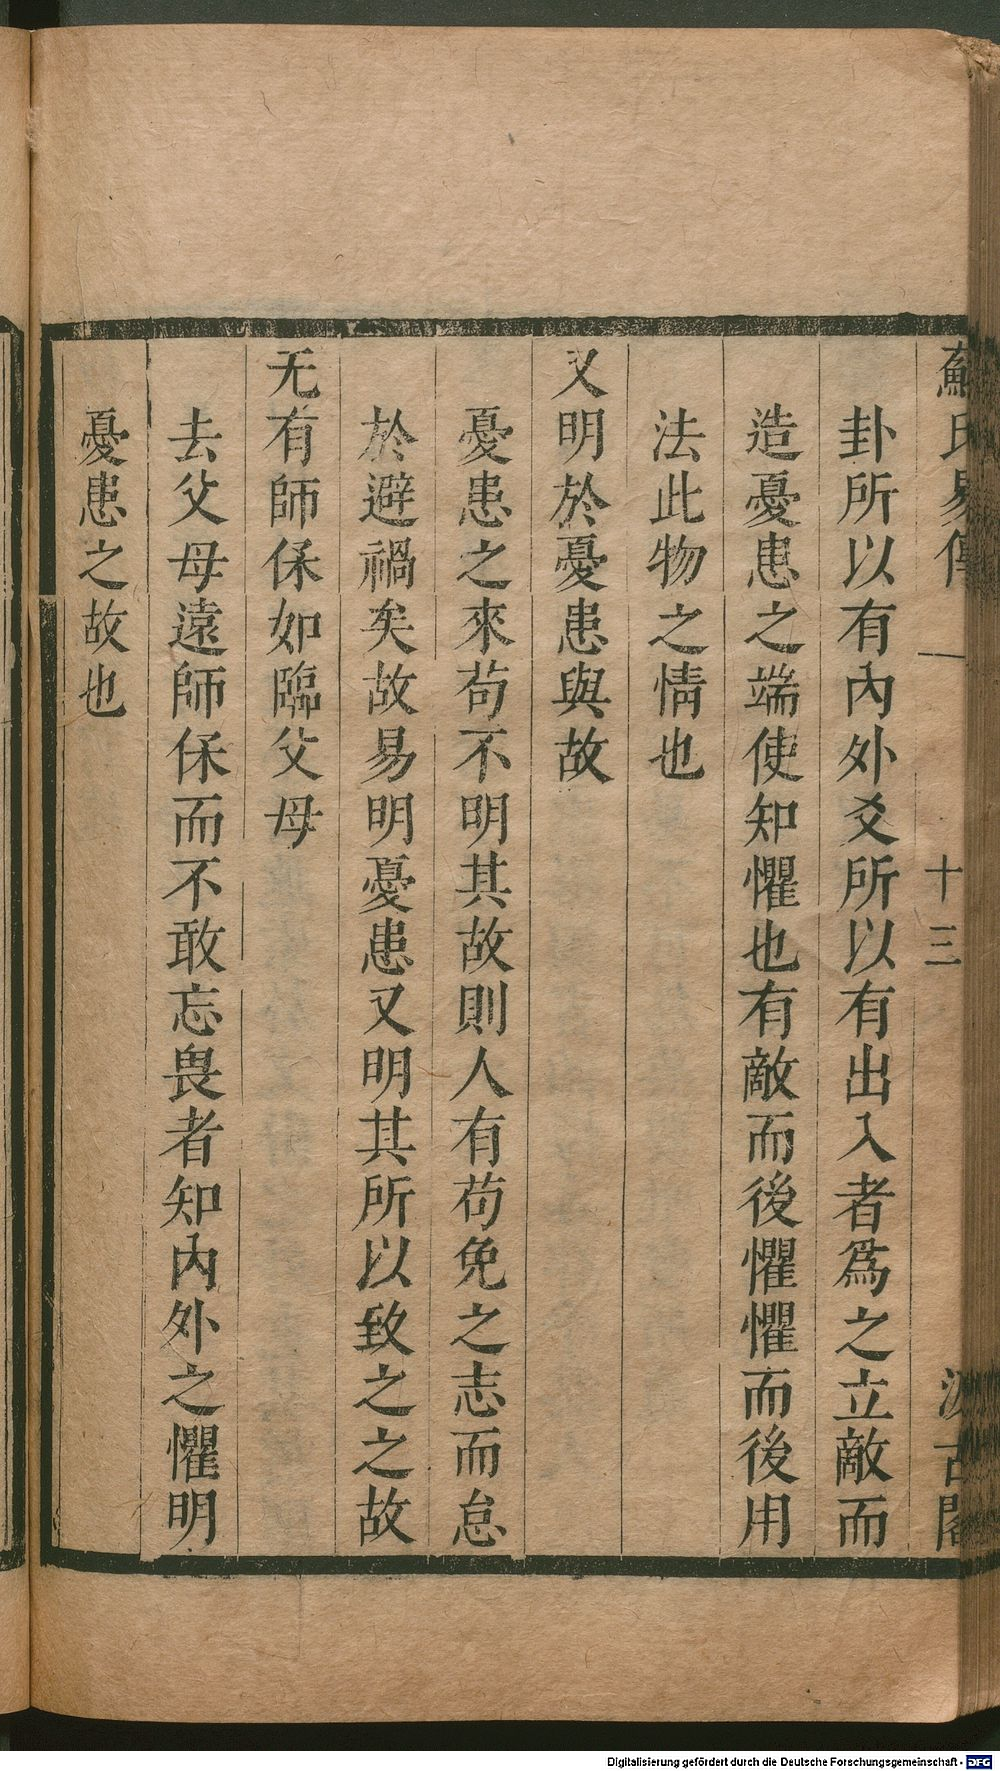 蘇氏易傳 一 十三 汲古閣
卦所以有內外爻所以有出入者爲之立敵而
造憂患之端使知懼也有敵而後懼懼而後用
法此物之情也
又明於憂患與故
憂患之來苟不明其故則人有苟免之志而怠
於避禍矣故易明憂患又明其所以致之之故
无有師保如臨父母
去父母遠師保而不敢忘畏者知內外之懼明
憂患之故也
Digitalisierung gefördert durch die Deutsche Forschungsgemeinschaft - DFG